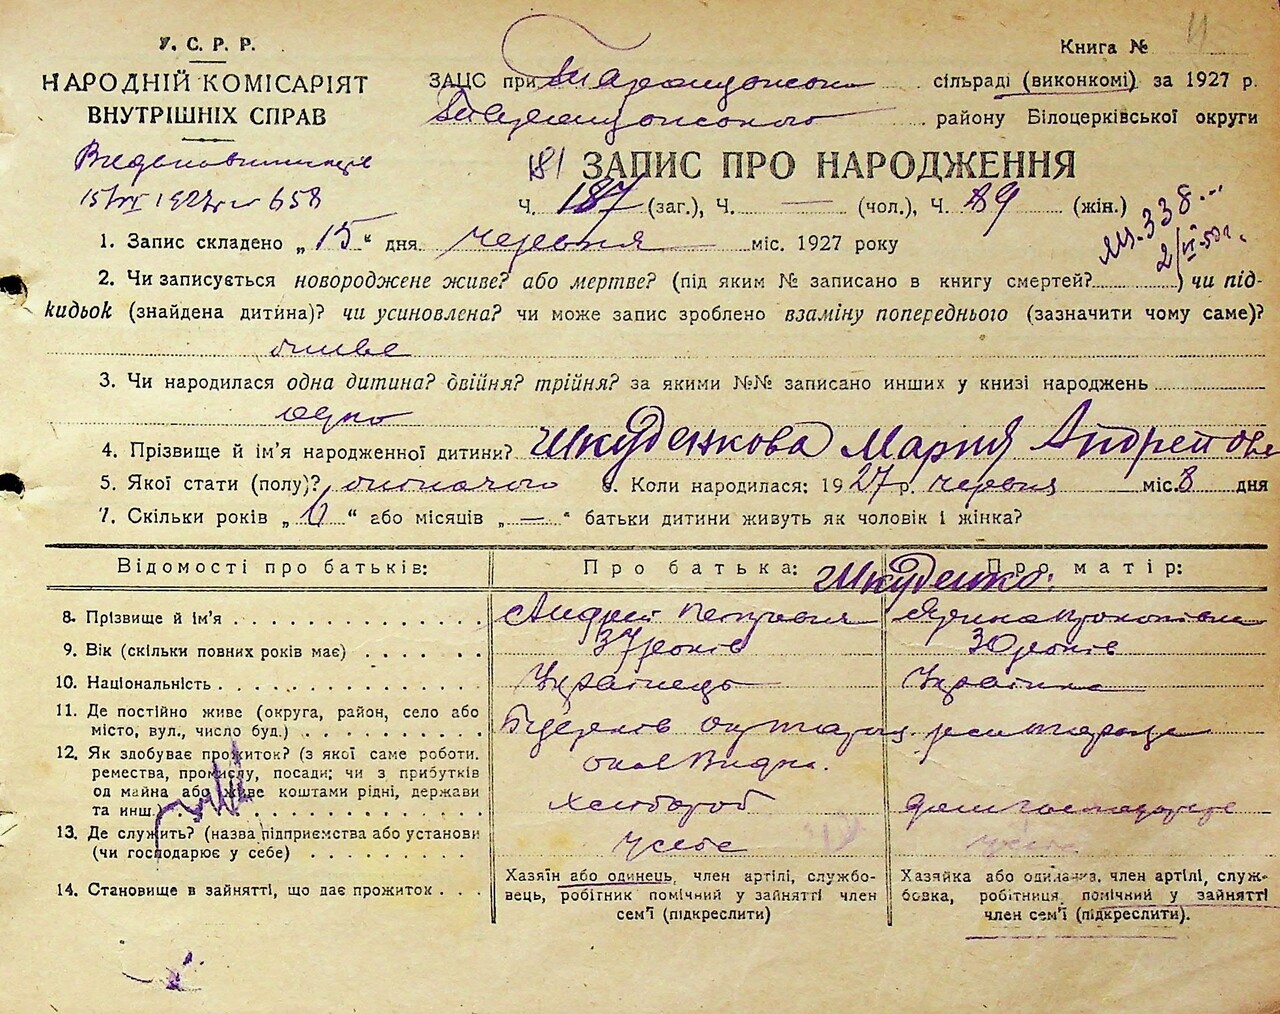 У. С. Р. Р.
НАРОДНІЙ КОМІСАРІЯТ
ВНУТРІШНІХ СПРАВ
15/VI 1927 р № 658
Книга №
ЗАЦС при сільраді (виконкомі) за 1927 р.
району Білоцерківської округи
181 ЗАПИС ПРО НАРОДЖЕННЯ
Ч. 187 (заг.), Ч. — (чол.), Ч. 89 (жін.)
338
1. Запис складено „ 15 “ дня червня міс. 1927 року
2. Чи записується новороджене живе? або мертве? (під яким № записано в книгу смертей?) чи під-
кидьок (знайдена дитина)? чи усиновлена? чи може запис зроблено взаміну попереднього (зазначити чому саме)?
живе
3. Чи народилася одна дитина? двійня? трійня? за якими №№ записано инших у книзі народжень
одно
4. Прізвище й ім'я народженної дитини? Шкуденкова Мария Андреевна
5. Якої стати (полу)? жіночого 6. Коли народилася: 1927 р. червня міс. 8 дня
7. Скільки років „ “ або місяців „ — “ батьки дитини живуть як чоловік і жінка?
Відомості про батьків: Про батька: Про матір:
Шкуденко
8. Прізвище й ім'я Андрій Петрович Ярина Прокопівна
9. Вік (скільки повних років має) 37 років 30 років
10. Національність Українець Українка
11. Де постійно живе (округа, район, село або
місто, вул., число буд.)
12. Як здобуває прожиток? (з якої саме роботи,
ремества, промислу, посади; чи з прибутків
од майна або живе коштами рідні, держави
та инш. Хлібороб
13. Де служить? (назва підприємства або установи
(чи господарює у себе)
14. Становище в зайнятті, що дає прожиток
Хазяїн або одинець, член артілі, службо-
вець, робітник помічний у зайнятті член
сем'ї (підкреслити)
Хазяйка або одиначка, член артілі, служ-
бовка, робітниця, помічний у зайнятті
член сем'ї (підкреслити).